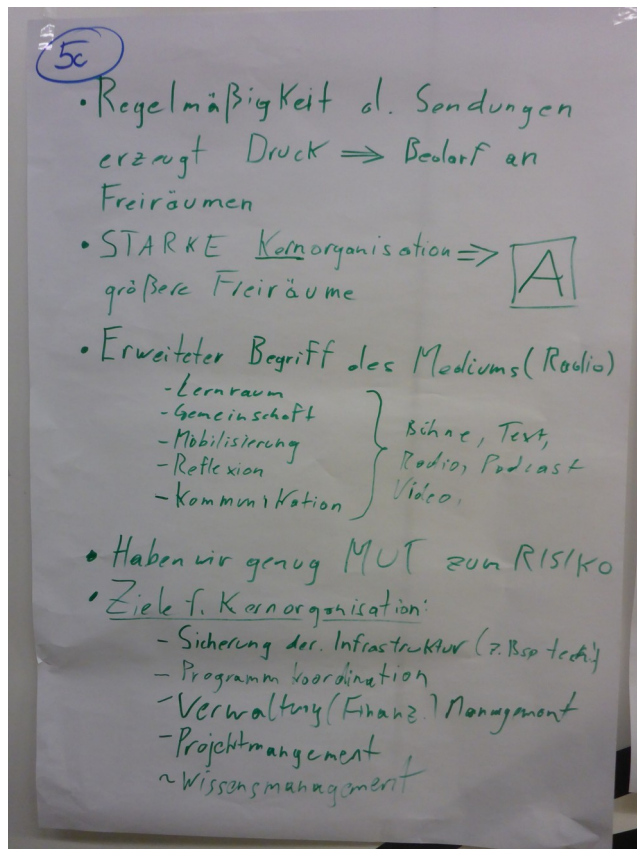 5c
• Regelmäßigkeit d. Sendungen
erzeugt Druck ⇒ Bedarf an
Freiräumen
• STARKE Kernorganisation ⇒ A
größere Freiräume
• Erweiteter Begriff des Mediums (Radio)
- Lernraum
- Gemeinschaft
- Mobilisierung
- Reflexion
- Kommunikation
Bühne, Text,
Radio, Podcast
Video.
• Haben wir genug MUT zum RISIKO
• Ziele f. Kernorganisation:
- Sicherung der. Infrastruktur (z.Bsp tech.)
- Programm koordination
- Verwaltung (Finanz.) Management
- Projektmangement
~ Wissensmanagement